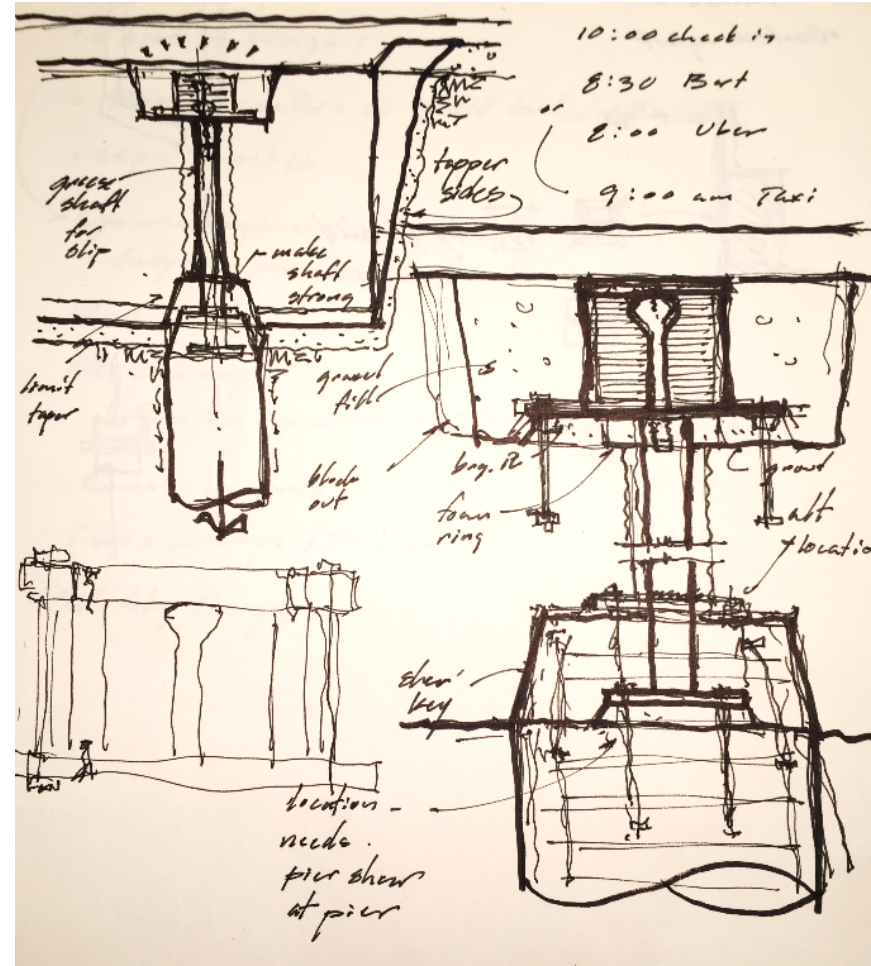 10:00 check in
8:30 Bart
or
8:00 Uber
9:00 am Taxi
grease
shaft
for
slip
make
shaft
strong
tapper
sides
limit
taper
ground
fill
block
out
brg. PL
foam
ring
grout
alt
location
shear
key
location
needs
pier shear
at pier